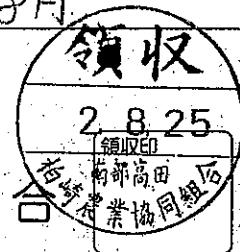 月
領収
2.8.25
領収印
南部高田
柏崎農業協同組合
合